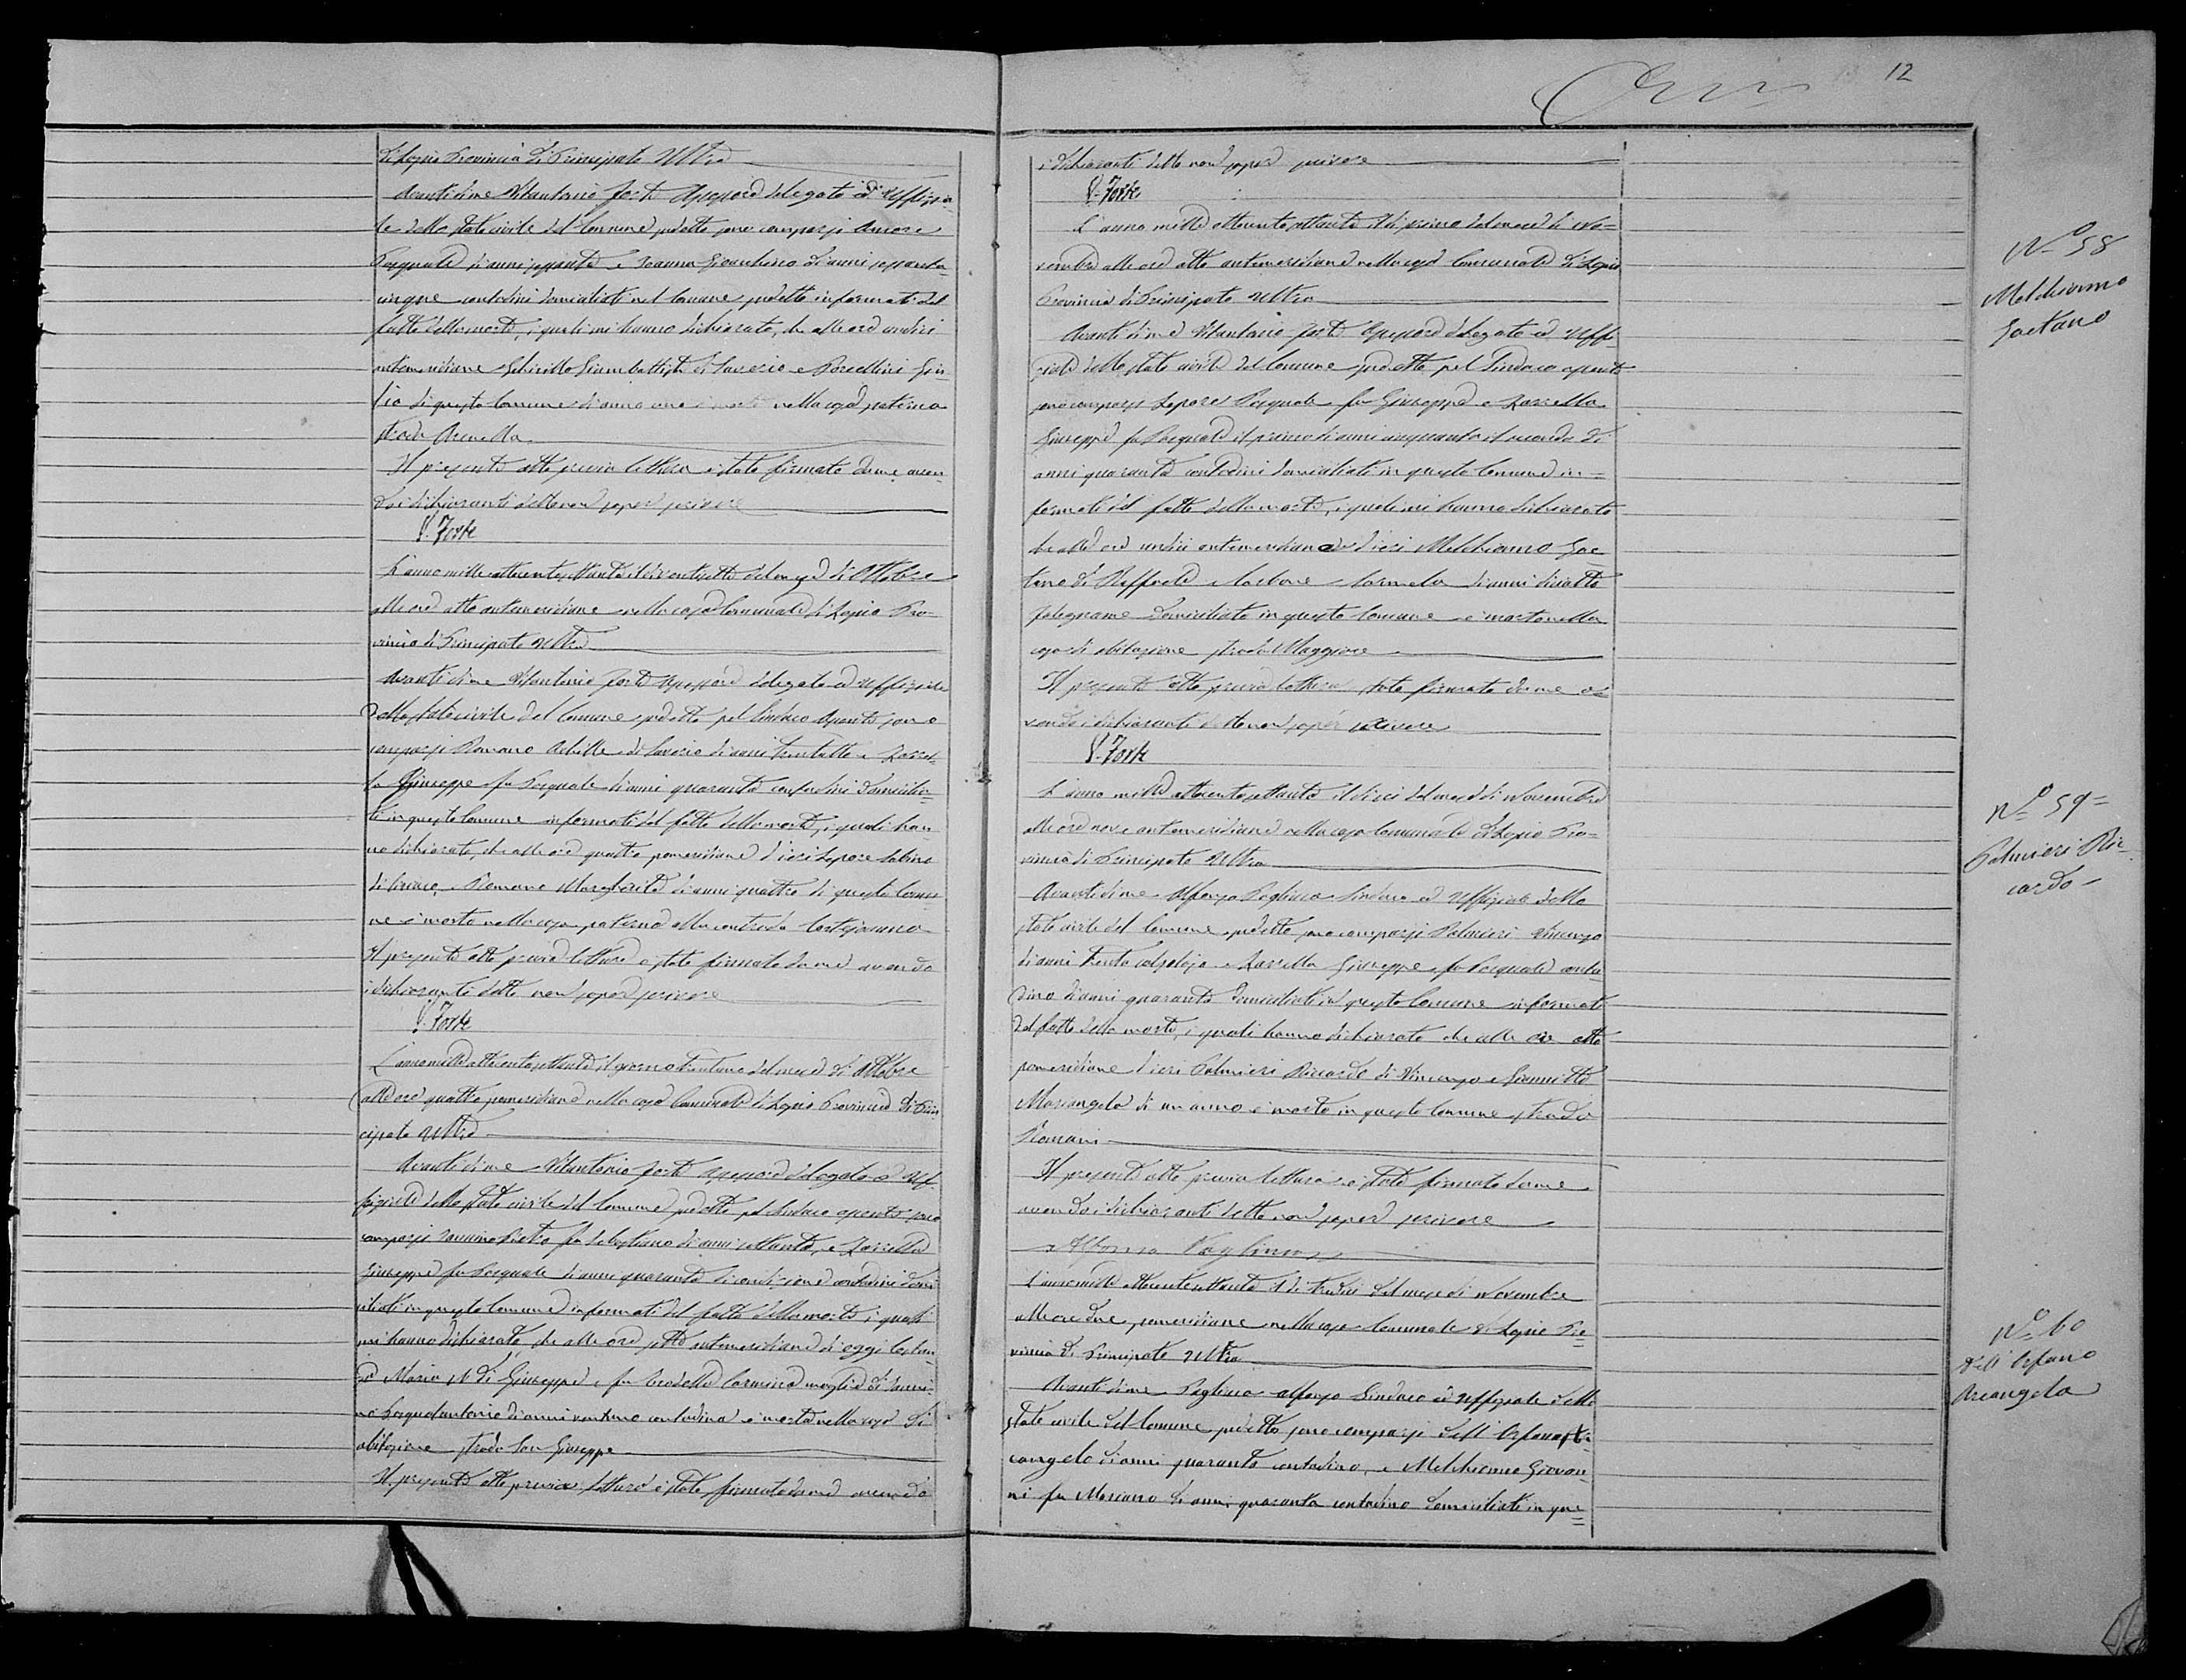 di Lapio Provincia di Principato Ultra
Avanti di me Vitantonio Forte Assessore delegato ad Uffizia=
le dello stato civile del Comune sudetto sono comparsi
Pasquale di anni sessanta e Gioacchino di anni sessanta
cinque contadini domiciliati nel Comune sudetto informati del
fatto della morte, i quali mi hanno dichiarato, che alle ore undici
antimeridiane Schirillo Giambattista di Saverio e Porcellini Giu=
lia di questo Comune di anno uno è morto nella casa paterna
strada Arenella
Il presente atto previa lettura è stato firmato da me aven=
do i dichiaranti detto non saper scrivere
V. Forte
L'anno mille ottocento settanta il dì ventisette del mese di Ottobre
alle ore otto antimeridiane nella casa Comunale di Lapio Pro=
vincia di Principato Ultra
Avanti di me Vitantonio Forte Assessore delegato ad Uffiziale
dello stato civile del Comune sudetto pel Sindaco assente sono
comparsi Romano Achille di Saverio di anni trentotto e Zarrel=
la Giuseppe fu Pasquale di anni quaranta contadini domicilia=
ti in questo Comune informati del fatto della morte, i quali han=
no dichiarato, che alle ore quattro pomeridiane d'ieri Lepore Sabino
di e Romano Margherita di anni quattro di questo Comu=
ne è morto nella casa paterna alla contrada
Il presente atto previa lettura è stato firmato da me avendo
i dichiaranti detto non saper scrivere
V. Forte
L'anno mille ottocento settanta, il giorno trentuno del mese di Ottobre
alle ore quattro pomeridiane nella casa Comunale di Lapio Provincia di Prin
cipato Ultra
Avanti di me Vitantonio Forte Assessore delegato ad Uf=
fiziale dello stato civile del Comune sudetto pel Sindaco assente sono
comparsi Pietro fu Sebastiano di anni settanta, e Zarrella
Giuseppe fu Pasquale di anni quaranta di condizione contadini domi
ciliati in questo Comune informati del fatto della morte, i quali
mi hanno dichiarato, che alle ore sette antimeridiane di oggi
Maria di Giuseppe e fu Carmina moglie di
Pasqualantonio di anni ventuno contadina è morta nella casa di
abitazione strada San Giuseppe
Il presente atto previa lettura è stato firmato da me avendo
i dichiaranti detto non saper scrivere
V. Forte
L'anno mille ottocento settanta il dì primo del mese di No=
vembre alle ore otto antimeridiane nella casa Comunale di Lapio
Provincia di Principato Ultra
Avanti di me Vitantonio Forte Assessore delegato ad Uffi=
ziale dello stato civile del Comune sudetto pel Sindaco assente
sono comparsi Lepore Pasquale fu Giuseppe e Zarrella
Giuseppe fu Pasquale il primo di anni cinquanta il secondo di
anni quaranta contadini domiciliati in questo Comune in=
formati del fatto della morte, i quali mi hanno dichiarato
che alle ore undici antimeridiane d'ieri Melchionno Gae
tano di Raffaele e Carbone Carmela di anni diciotto
falegname domiciliato in questo Comune è morto nella
casa di abitazione strada Maggiore
Il presente atto previa lettura è stato firmato da me a=
vendo i dichiaranti detto non saper scrivere
V. Forte
L'anno mille ottocento settanta il dieci del mese di Novembre
alle ore nove antimeridiane nella casa Comunale di Lapio Pro=
vincia di Principato Ultra
Avanti di me Alfonso Pagliuca Sindaco ed Uffiziale dello
stato civile del Comune sudetto sono comparsi Palmieri Vincenzo
di anni trenta calzolajo e Zarrella Giuseppe fu Pasquale conta
dino di anni quaranta domiciliati in questo Comune informati
del fatto della morte, i quali hanno dichiarato che alle ore otto
pomeridiane d'ieri Palmieri Riccardo di Vincenzo e Giannitto
Mariangela di un anno è morto in questo Comune strada
Romani
Il presente atto previa lettura è stato firmato da me
avendo i dichiaranti detto non saper scrivere
Alfonso Pagliuca
L'anno mille ottocento settanta il dì tredici del mese di Novembre
alle ore due pomeridiane nella casa Comunale di Lapio Pro=
vincia di Principato Ultra
Avanti di me Pagliuca Alfonso Sindaco ed Uffiziale dello
stato civile del Comune sudetto sono comparsi Dell'Orfano
cangelo di anni quaranta contadino, e Melchionno Giovan
ni fu Mariano di anni quaranta contadino domiciliati in que=
12
N.o 58
Melchionno
Gaetano
N.o 59=
Palmieri Ric=
cardo
N.o 60
Dell'Orfano
Arcangela